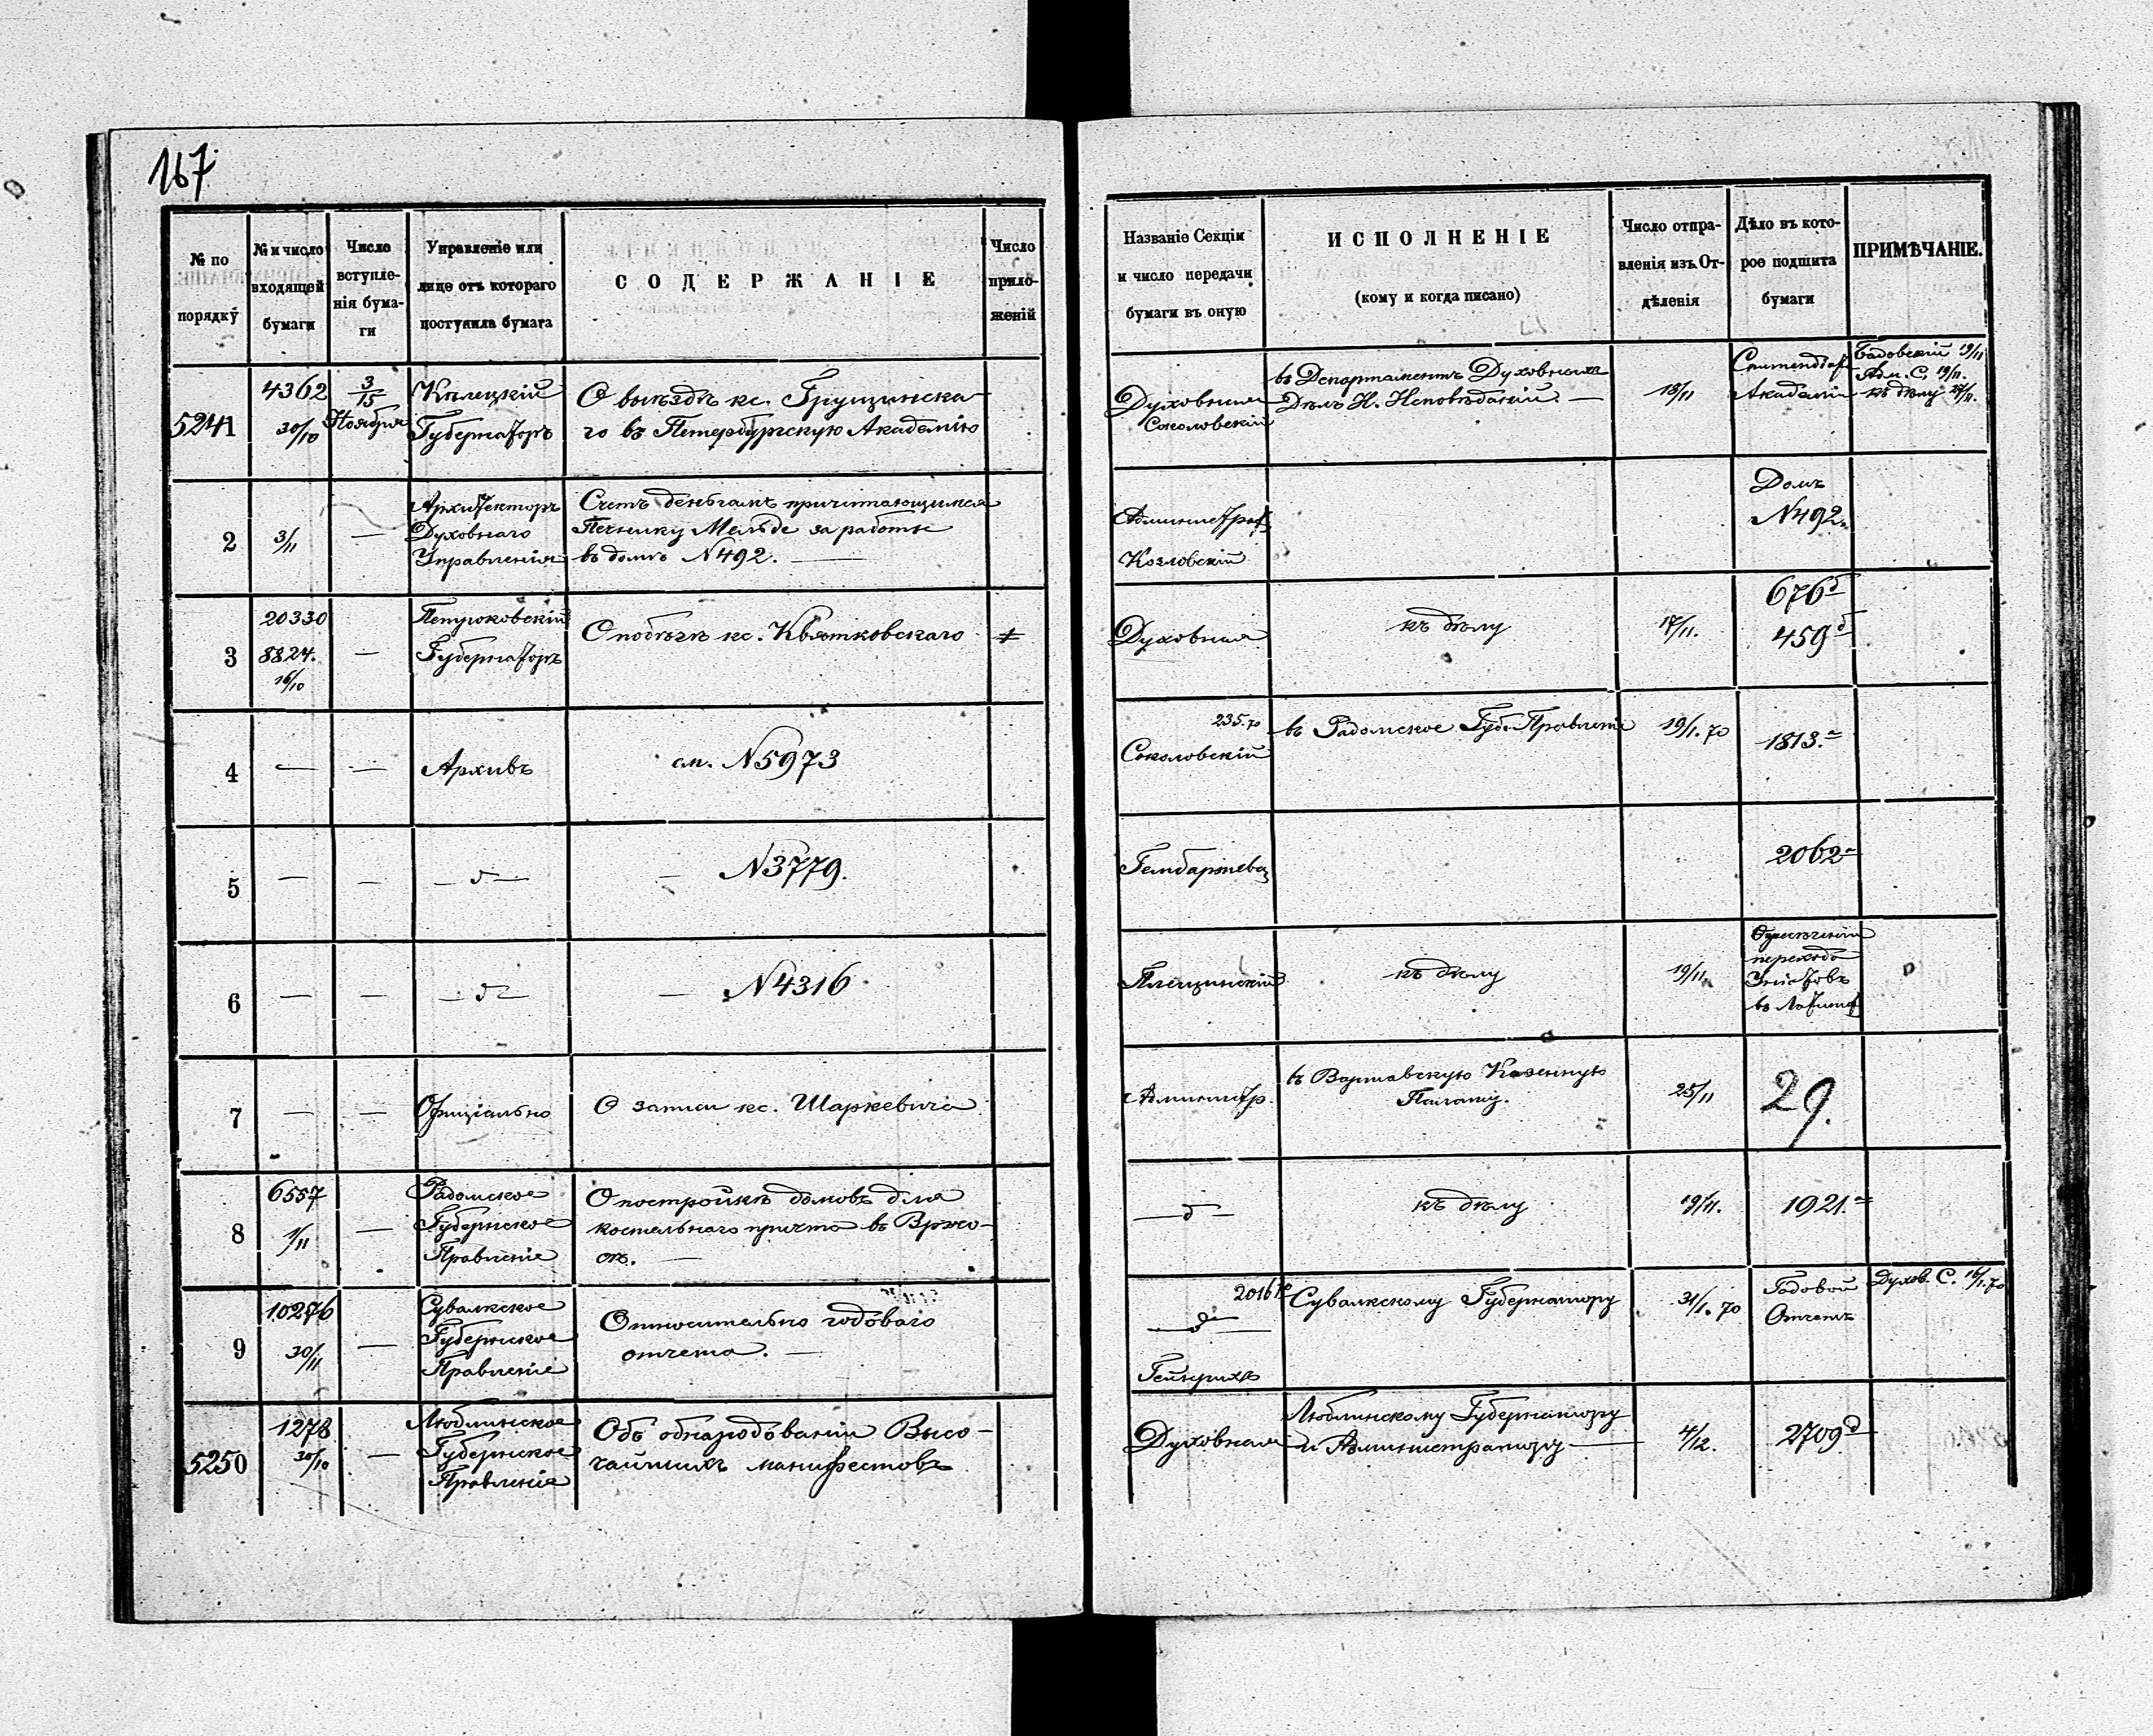 167.
№ по
порядку
№ и число
входящей
бумаги
Число
вступле-
нія бума-
ги
Управленіе или
лице отъ котораго
поступила бумага
СОДЕРЖАНІЕ
Число
прило-
женій
Названіе Секціи
и число передачи
бумаги въ оную
ИСПОЛНЕНІЕ
(кому и когда писано)
Число отпра-
вленія изъ От-
дѣленія
Дѣло въ кото-
рое подшита
бумаги
ПРИМѢЧАНІЕ.
5241
4362
30/10
3/15
Ноября
Кѣлецкій
Губернаторъ
О выѣздѣ кс. Грущинска-
го въ Петербургскую Академію
Духовная
Соколовскій
въ Департаментъ Духовныхъ
Дѣлъ И. Исповѣданій. —
18/11
Академіи
19/11
Адм. С. 19/11.
къ дѣлу
2
3/11
—
Архитекторъ
Духовнаго
Управленія
Счетъ деньгамъ причитающимся
Печнику Мельде за работы
въ домѣ N 492. —
Администрат
Козловскій
Домъ
N 492.
3
20330
8824.
16/10
—
Губернаторъ
О побѣгѣ кс. Квятковскаго
Духовная
къ дѣлу
17/11.
676
459
4
—
—
Архивъ
см. N 5973
235.70
Соколовскій
въ Радомское Губ. Правленіе
19/1.70
1813.а
5
—
—
— д —
— N 3779.
2062а
6
—
—
— д —
— N 4316
къ дѣлу
19/11.
перехода
Уніатовъ
7
—
—
Офиціально
О записи кс. Шаркевича
Администр.
въ Варшавскую Казенную
Палату.
25/11
29.
8
6557
1/11
—
Радомское
Губернское
Правленіе
О постройкѣ домовъ для
костельнаго причта въ Вржо-
сѣ. —
— д —
къ дѣлу
19/11.
1921.а
9
10276
30/11
—
Сувалкское
Губернское
Правленіе
Относительно годоваго
отчета. —
— д —
Гейнрихъ
Сувалкскому Губернатору
31/1.70
Годовой
Отчетъ
Духов. С. 16/1.70
5250
1278
30/10
—
Люблинское
Губернское
Правленіе
Объ обнародованіи Высо-
чайшихъ манифестовъ
Духовная
Люблинскому Губернатору
и Администратору —
4/12.
2709